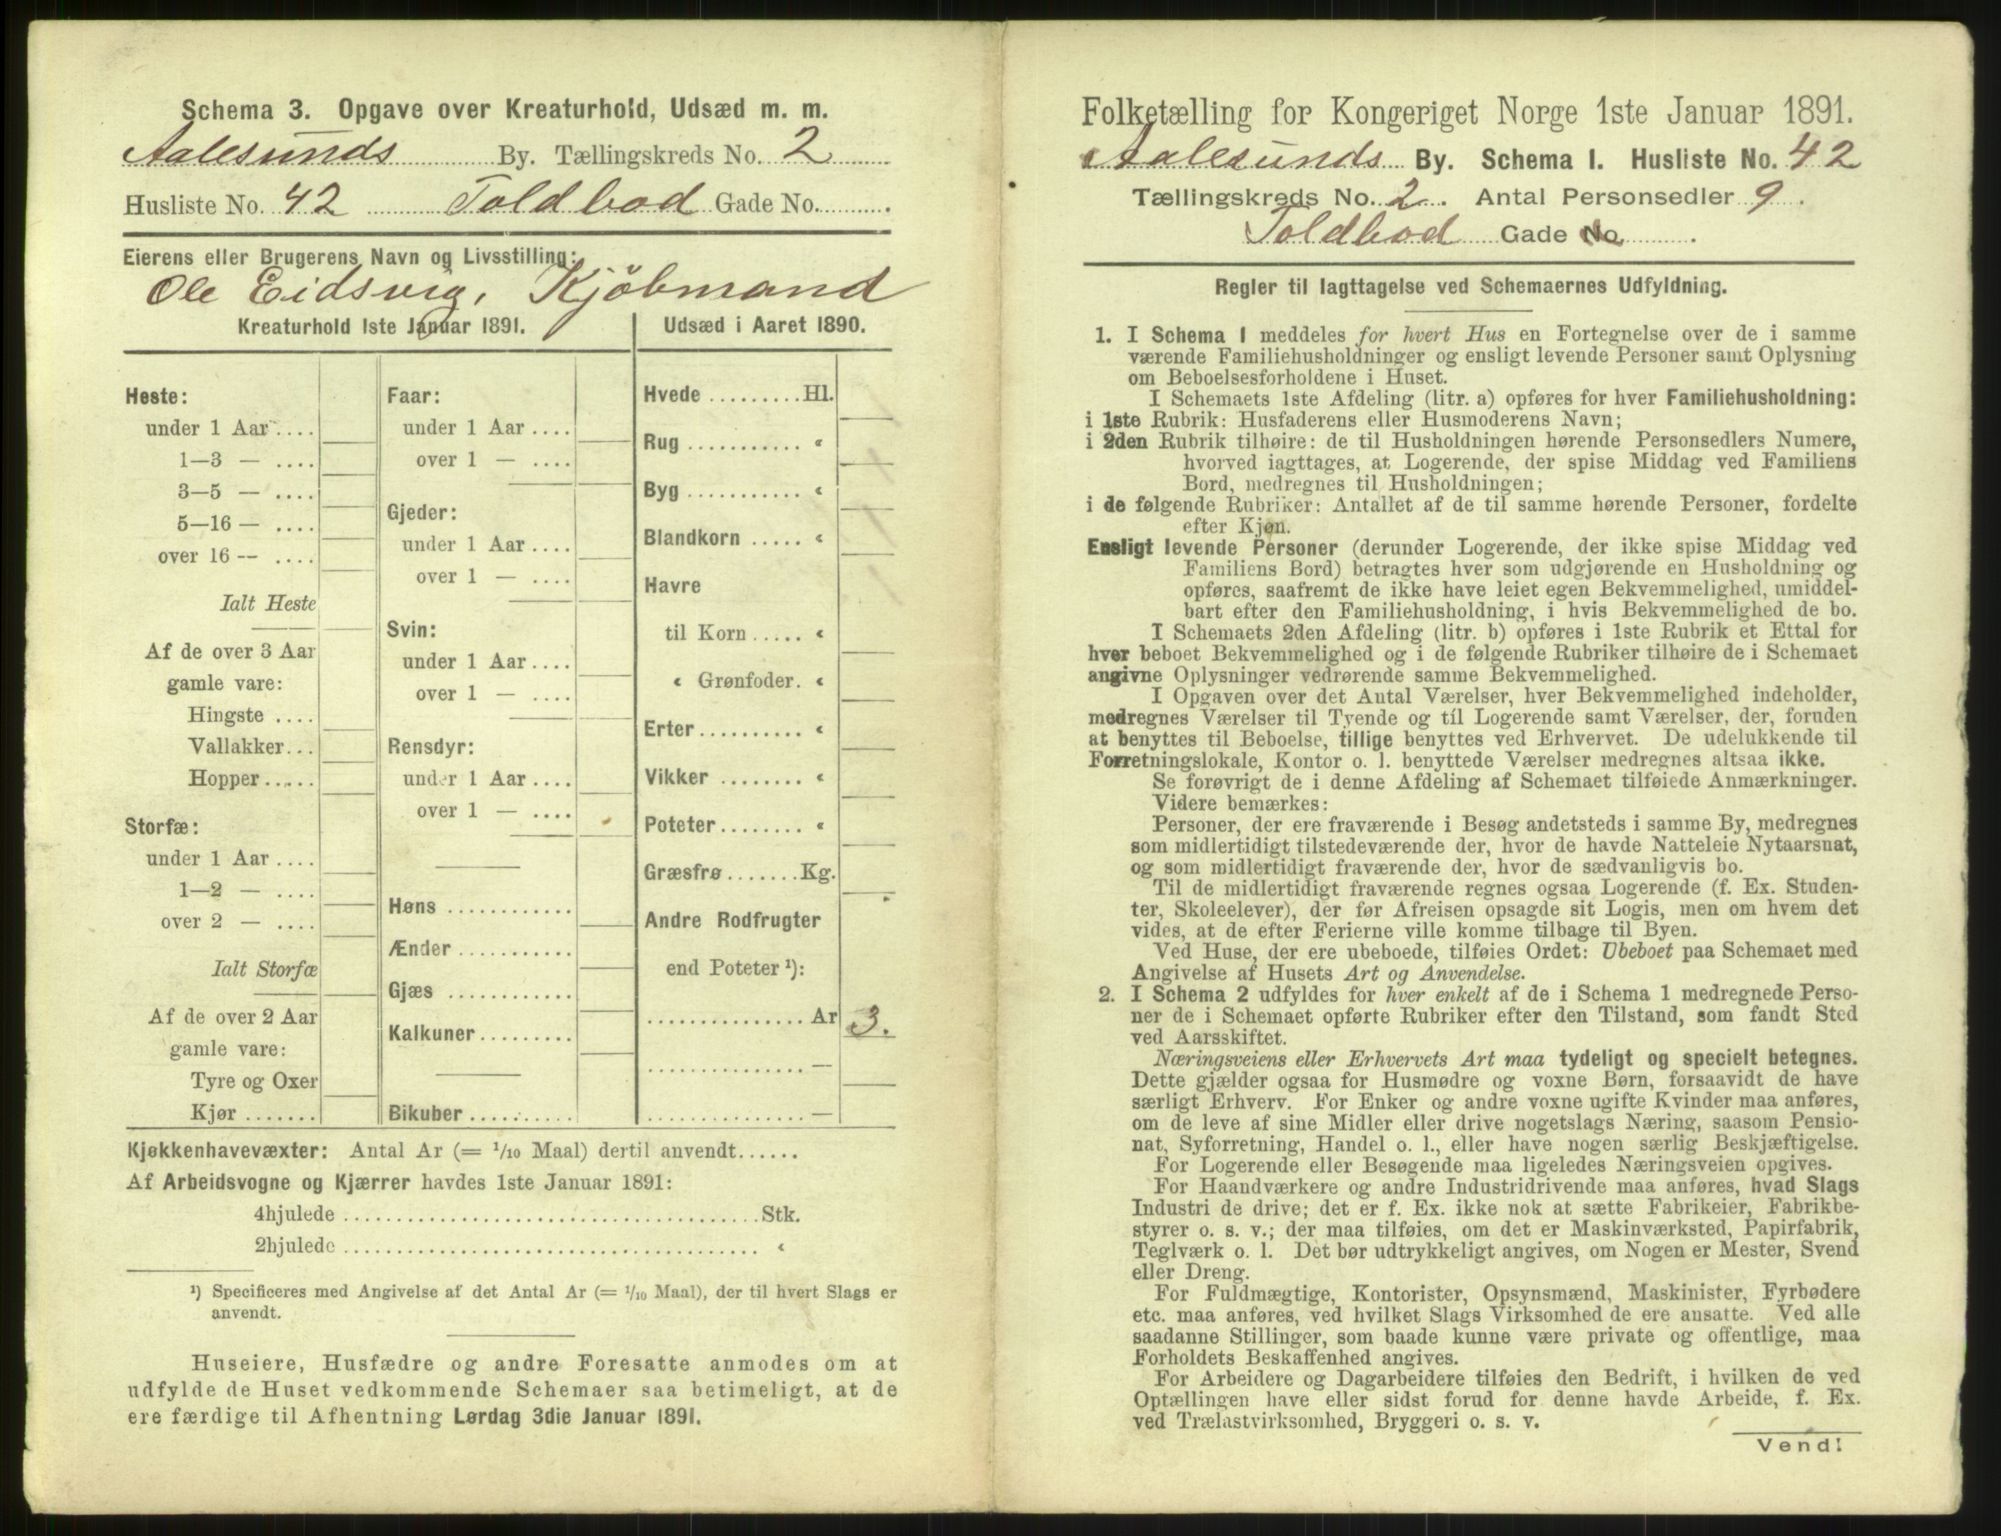 Schema 3. Opgave over Kreaturhold, Udsæd m. m.
Aalesunds By. Tællingskreds No. 2
Husliste No. 42 Toldbod Gade No.
Eierens eller Brugerens Navn og Livsstilling:
Ole Eidsvig, Kjöbmand
Kreaturhold 1ste Januar 1891.
Heste:
under 1 Aar....
1—3 — ....
3—5 — ....
5—16 — ....
over 16 -- ....
Ialt Heste
Af de over 3 Aar
gamle vare:
Hingste ....
Vallakker...
Hopper.....
Storfæ:
under 1 Aar....
1—2 — ....
over 2 — ....
Ialt Storfæ
Af de over 2 Aar
gamle vare:
Tyre og Oxer
Kjør.......
Faar:
under 1 Aar....
over 1 — ....
Gjeder:
under 1 Aar....
over 1 — ....
Svin:
under 1 Aar....
over 1 — ....
Rensdyr:
under 1 Aar....
over 1 — ....
Høns ............
Ænder ...........
Gjæs ............
Kalkuner.........
Bikuber..........
Udsæd i Aaret 1890.
Hvede.........Hl.
Rug ........... «
Byg ........... «
Blandkorn ..... «
Havre
til Korn ..... «
« Grønfoder. «
Erter.......... «
Vikker ........ «
Poteter........ «
Græsfrø.......Kg.
Andre Rodfrugter
end Poteter ¹):
............... Ar 3.
............... —
............... —
Kjøkkenhavevæxter: Antal Ar (= 1/10 Maal) dertil anvendt......
Af Arbeidsvogne og Kjærrer havdes 1ste Januar 1891:
4hjulede ....................................Stk.
2hjulede .................................... «
¹) Specificeres med Angivelse af det Antal Ar (= 1/10 Maal), der til hvert Slags er
anvendt.
Huseiere, Husfædre og andre Foresatte anmodes om at
udfylde de Huset vedkommende Schemaer saa betimeligt, at de
ere færdige til Afhentning Lørdag 3die Januar 1891.
Folketælling for Kongeriget Norge 1ste Januar 1891.
Aalesunds By. Schema I. Husliste No. 42
Tællingskreds No. 2. Antal Personsedler 9.
Toldbod Gade No.
Regler til Iagttagelse ved Schemaernes Udfyldning.
1. I Schema 1 meddeles for hvert Hus en Fortegnelse over de i samme
værende Familiehusholdninger og ensligt levende Personer samt Oplysning
om Beboelsesforholdene i Huset.
I Schemaets 1ste Afdeling (litr. a) opføres for hver Familiehusholdning:
i 1ste Rubrik: Husfaderens eller Husmoderens Navn;
i 2den Rubrik tilhøire: de til Husholdningen hørende Personsedlers Numere,
hvorved iagttages, at Logerende, der spise Middag ved Familiens
Bord, medregnes til Husholdningen;
i de følgende Rubriker: Antallet af de til samme hørende Personer, fordelte
efter Kjøn.
Ensligt levende Personer (derunder Logerende, der ikke spise Middag ved
Familiens Bord) betragtes hver som udgjørende en Husholdning og
opføres, saafremt de ikke have leiet egen Bekvemmelighed, umiddel-
bart efter den Familiehusholdning, i hvis Bekvemmelighed de bo.
I Schemaets 2den Afdeling (litr. b) opføres i 1ste Rubrik et Ettal for
hver beboet Bekvemmelighed og i de følgende Rubriker tilhøire de i Schemaet
angivne Oplysninger vedrørende samme Bekvemmelighed.
I Opgaven over det Antal Værelser, hver Bekvemmelighed indeholder,
medregnes Værelser til Tyende og til Logerende samt Værelser, der, foruden
at benyttes til Beboelse, tillige benyttes ved Erhvervet. De udelukkende til
Forretningslokale, Kontor o. l. benyttede Værelser medregnes altsaa ikke.
Se forøvrigt de i denne Afdeling af Schemaet tilføiede Anmærkninger.
Videre bemærkes:
Personer, der ere fraværende i Besøg andetsteds i samme By, medregnes
som midlertidigt tilstedeværende der, hvor de havde Natteleie Nytaarsnat,
og som midlertidigt fraværende der, hvor de sædvanligvis bo.
Til de midlertidigt fraværende regnes ogsaa Logerende (f. Ex. Studen-
ter, Skoleelever), der før Afreisen opsagde sit Logis, men om hvem det
vides, at de efter Ferierne ville komme tilbage til Byen.
Ved Huse, der ere ubeboede, tilføies Ordet: Ubeboet paa Schemaet med
Angivelse af Husets Art og Anvendelse.
2. I Schema 2 udfyldes for hver enkelt af de i Schema 1 medregnede Perso-
ner de i Schemaet opførte Rubriker efter den Tilstand, som fandt Sted
ved Aarsskiftet.
Næringsveiens eller Erhvervets Art maa tydeligt og specielt betegnes.
Dette gjælder ogsaa for Husmødre og voxne Børn, forsaavidt de have
særligt Erhverv. For Enker og andre voxne ugifte Kvinder maa anføres,
om de leve af sine Midler eller drive nogetslags Næring, saasom Pensio-
nat, Syforretning, Handel o. l., eller have nogen særlig Beskjæftigelse.
For Logerende eller Besøgende maa ligeledes Næringsveien opgives.
For Haandværkere og andre Industridrivende maa anføres, hvad Slags
Industri de drive; det er f. Ex. ikke nok at sætte Fabrikeier, Fabrikbe-
styrer o. s. v.; der maa tilføies, om det er Maskinværksted, Papirfabrik,
Teglværk o. l. Det bør udtrykkeligt angives, om Nogen er Mester, Svend
eller Dreng.
For Fuldmægtige, Kontorister, Opsynsmænd, Maskinister, Fyrbødere
etc. maa anføres, ved hvilket Slags Virksomhed de ere ansatte. Ved alle
saadanne Stillinger, som baade kunne være private og offentlige, maa
Forholdets Beskaffenhed angives.
For Arbeidere og Dagarbeidere tilføies den Bedrift, i hvilken de ved
Optællingen have eller sidst forud for denne havde Arbeide, f. Ex.
ved Trælastvirksomhed, Bryggeri o. s. v.
Vend!